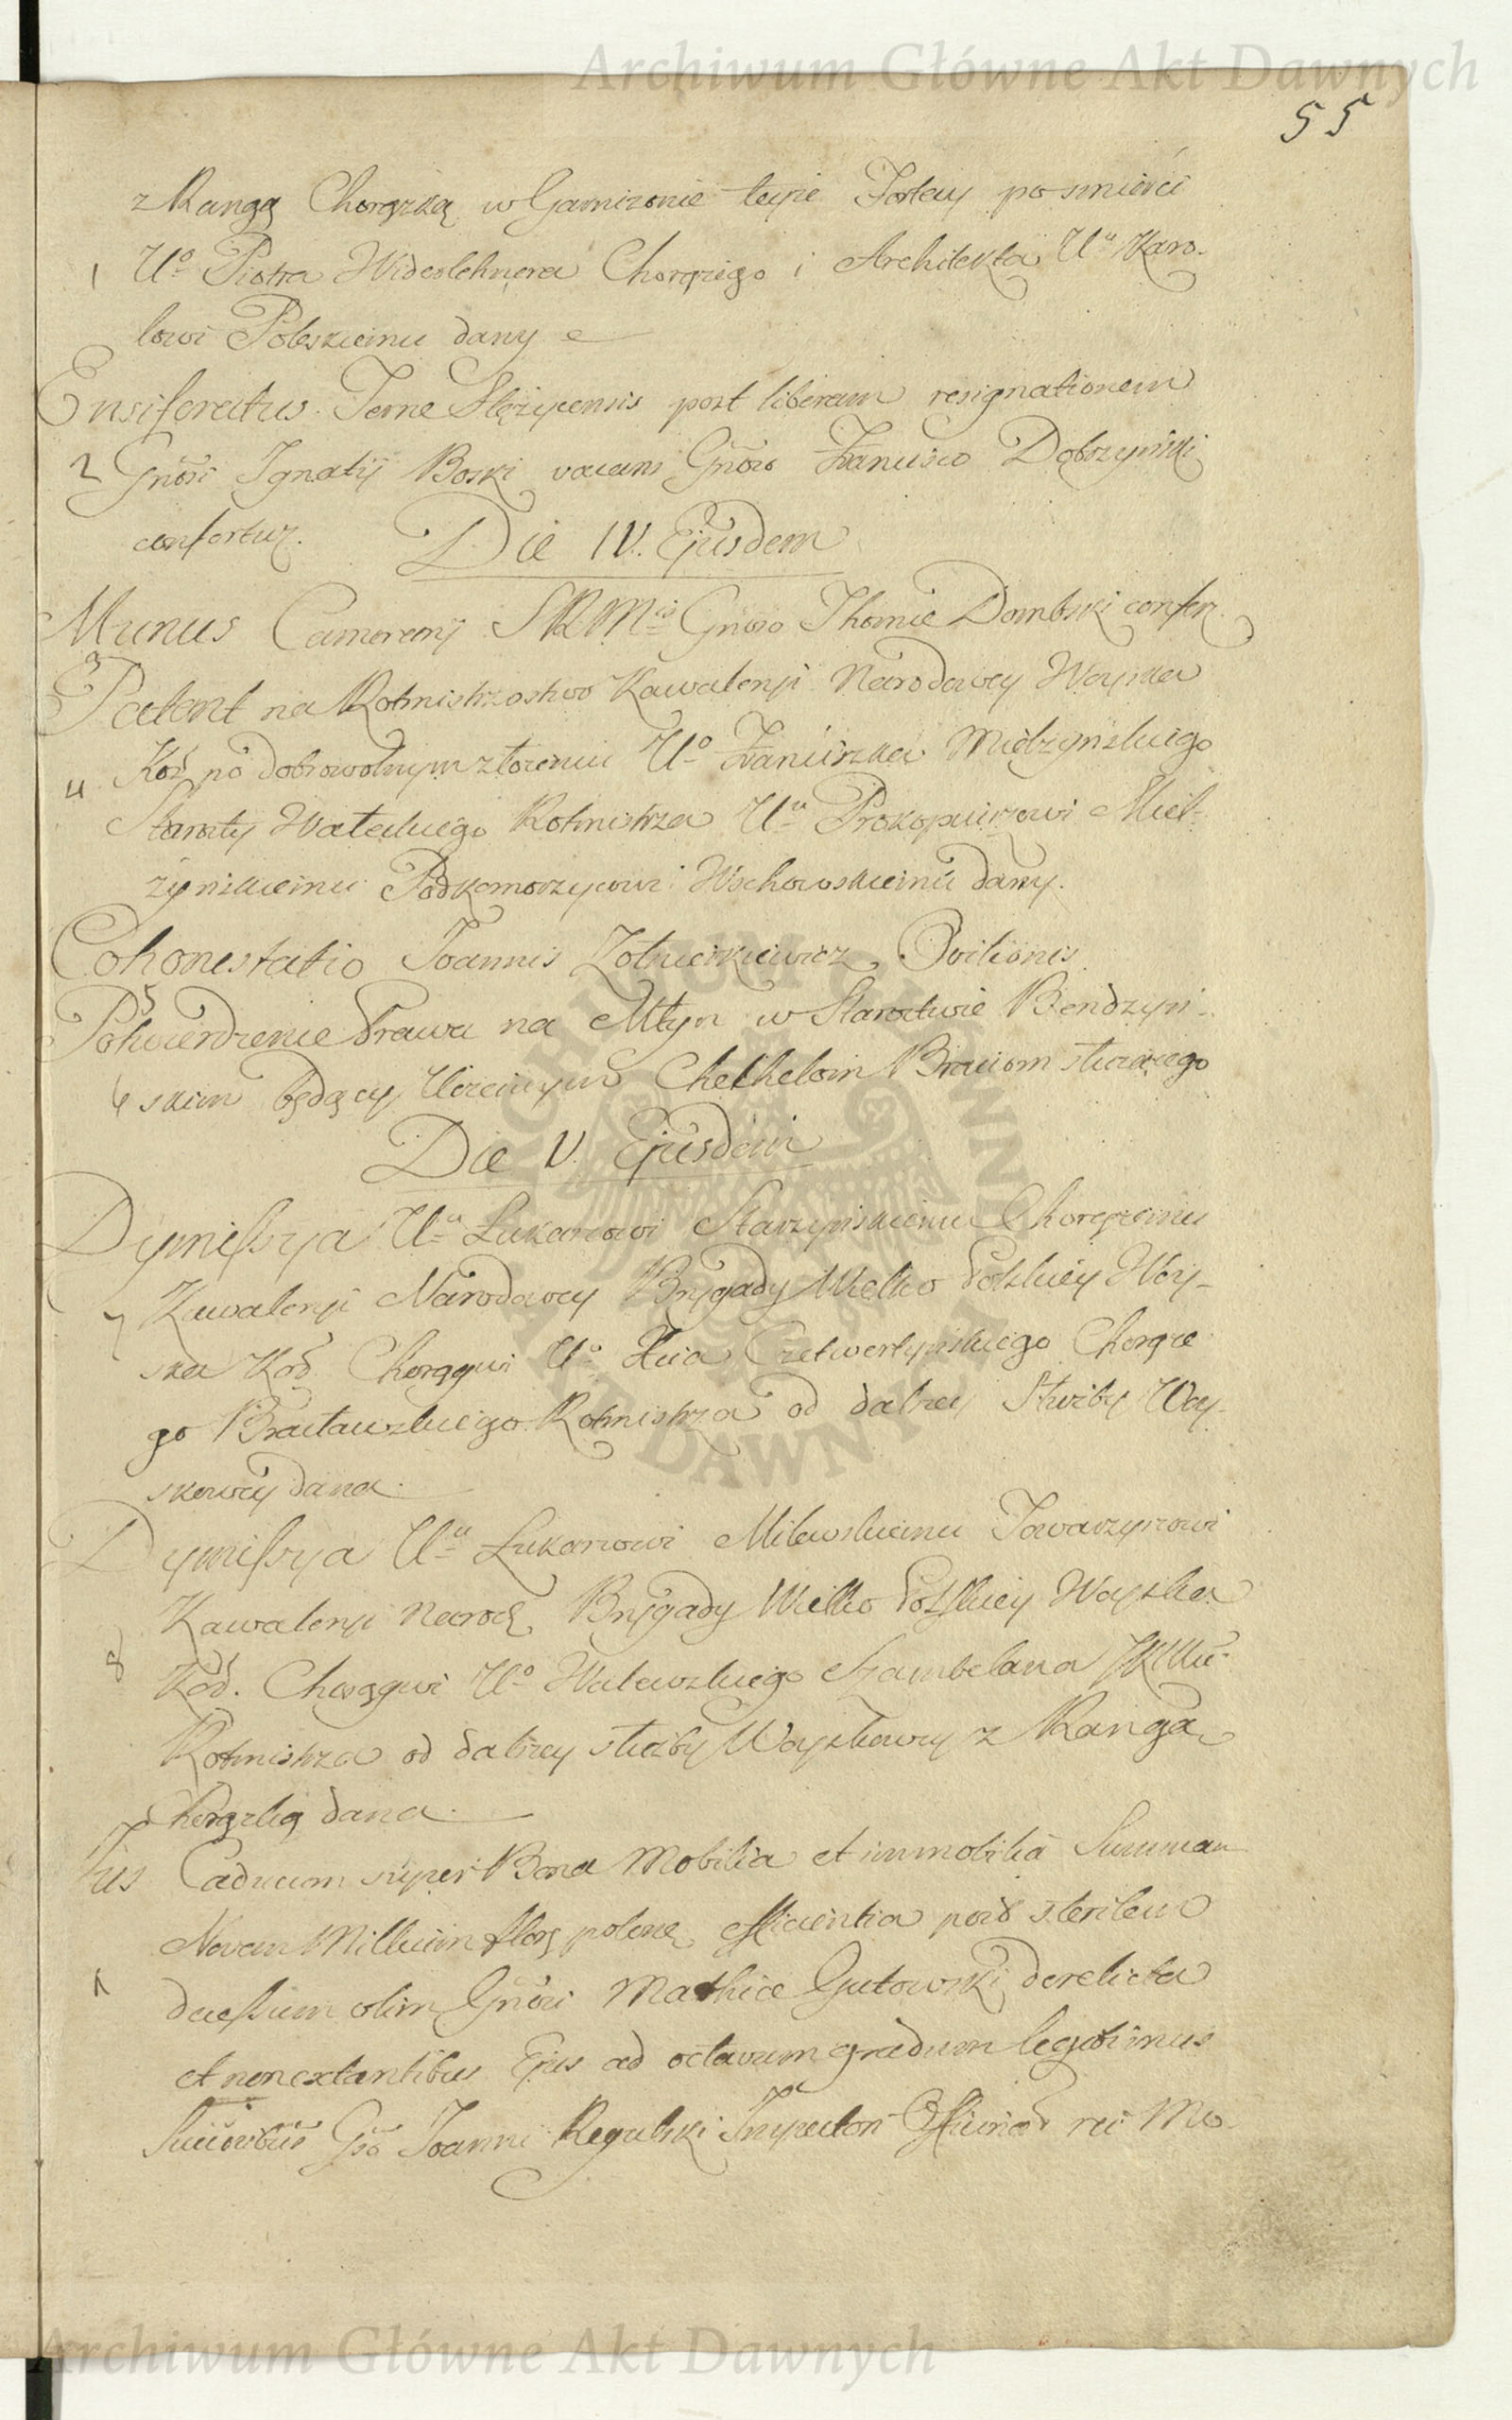 Archiwum Główne Akt Dawnych
55
z Rangą Chorązką w Garnizonie teyże Fortecy po smierci
1 Uº Piotra Widerlehnera Chorązego i Architekta Uu Karo-
lowi Poleskiemu dany
Ensiferatus Terræ Stężycensis post liberam resignationem
2 Gnosi Ignatij Boski vacans Gnoso Francisco Dobrzyński
confertur.
Die IV. Ejusdem
Munus Camerarij SRMis Gnoso Thomæ Dombski confer.
3
Patent na Rotmistrzostwo Kawaleryi Narodowey Woyska
4 Kor. po dobrowolnym złożeniu Uº Franciszka Mielżyńskiego
Starosty Wałeckiego Rotmistrza Uu Prokopowi Miel-
żyńskiemu Podkomorzycowi Wschowskiemu dany.
Cohonestatio Joannis Żołnierkiewicz Ovilionis
5
Potwierdzenie Prawa na Młyn w Starostwie Bendzyń-
6 skim będący Uczciwym Chechelom Braciom służącego
Die V. Ejusdem
Dymissya Uu Łukaszowi Starzyńskiemu Chorążemu
7 Kawaleryi Narodowey Brygady Wielko Polskiey Woy-
ska Kor. Chorągwi Uº Xcia Czetwertyńskiego Chorąże-
go Bracławskiego Rotmistrza od dalszey Służby Woy-
skowey dana.
Dymissya Uu Łukaszowi Milewskiemu Towarzyszowi
Kawaleryi Narod. Brygady Wielko Polskiey Woyska
8 Kor. Chorągwi Uº Walewskiego Szambelana JKMci
Rotmistrza od dalszey służby Woyskowey z Rangą
Chorązką dana.
Jus Caducum super Bona Mobilia et immobilia Summam
Novem Millium flor. polon. efficientia post sterilem
1 decessum olim Gnosi Mathiæ Gutowski derelicta
et non extantibus Ejus ad octavum gradum legitimis
Succoribus Gso Joanni Regulski Inspectori Officinæ rei Mo-
ARCHIWUM GŁÓWNE AKT DAWNYCH
Archiwum Główne Akt Dawnych